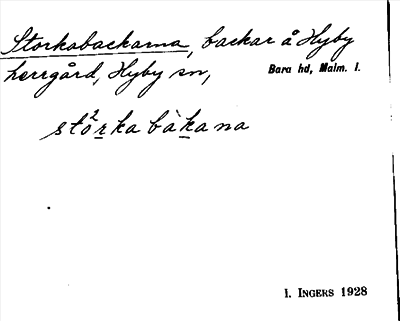 Storkabackarna, backar å Hyby
herrgård, Hyby sn, Bara hd, Malm. l.
stò²rka bàkana
I. INGERS 1928